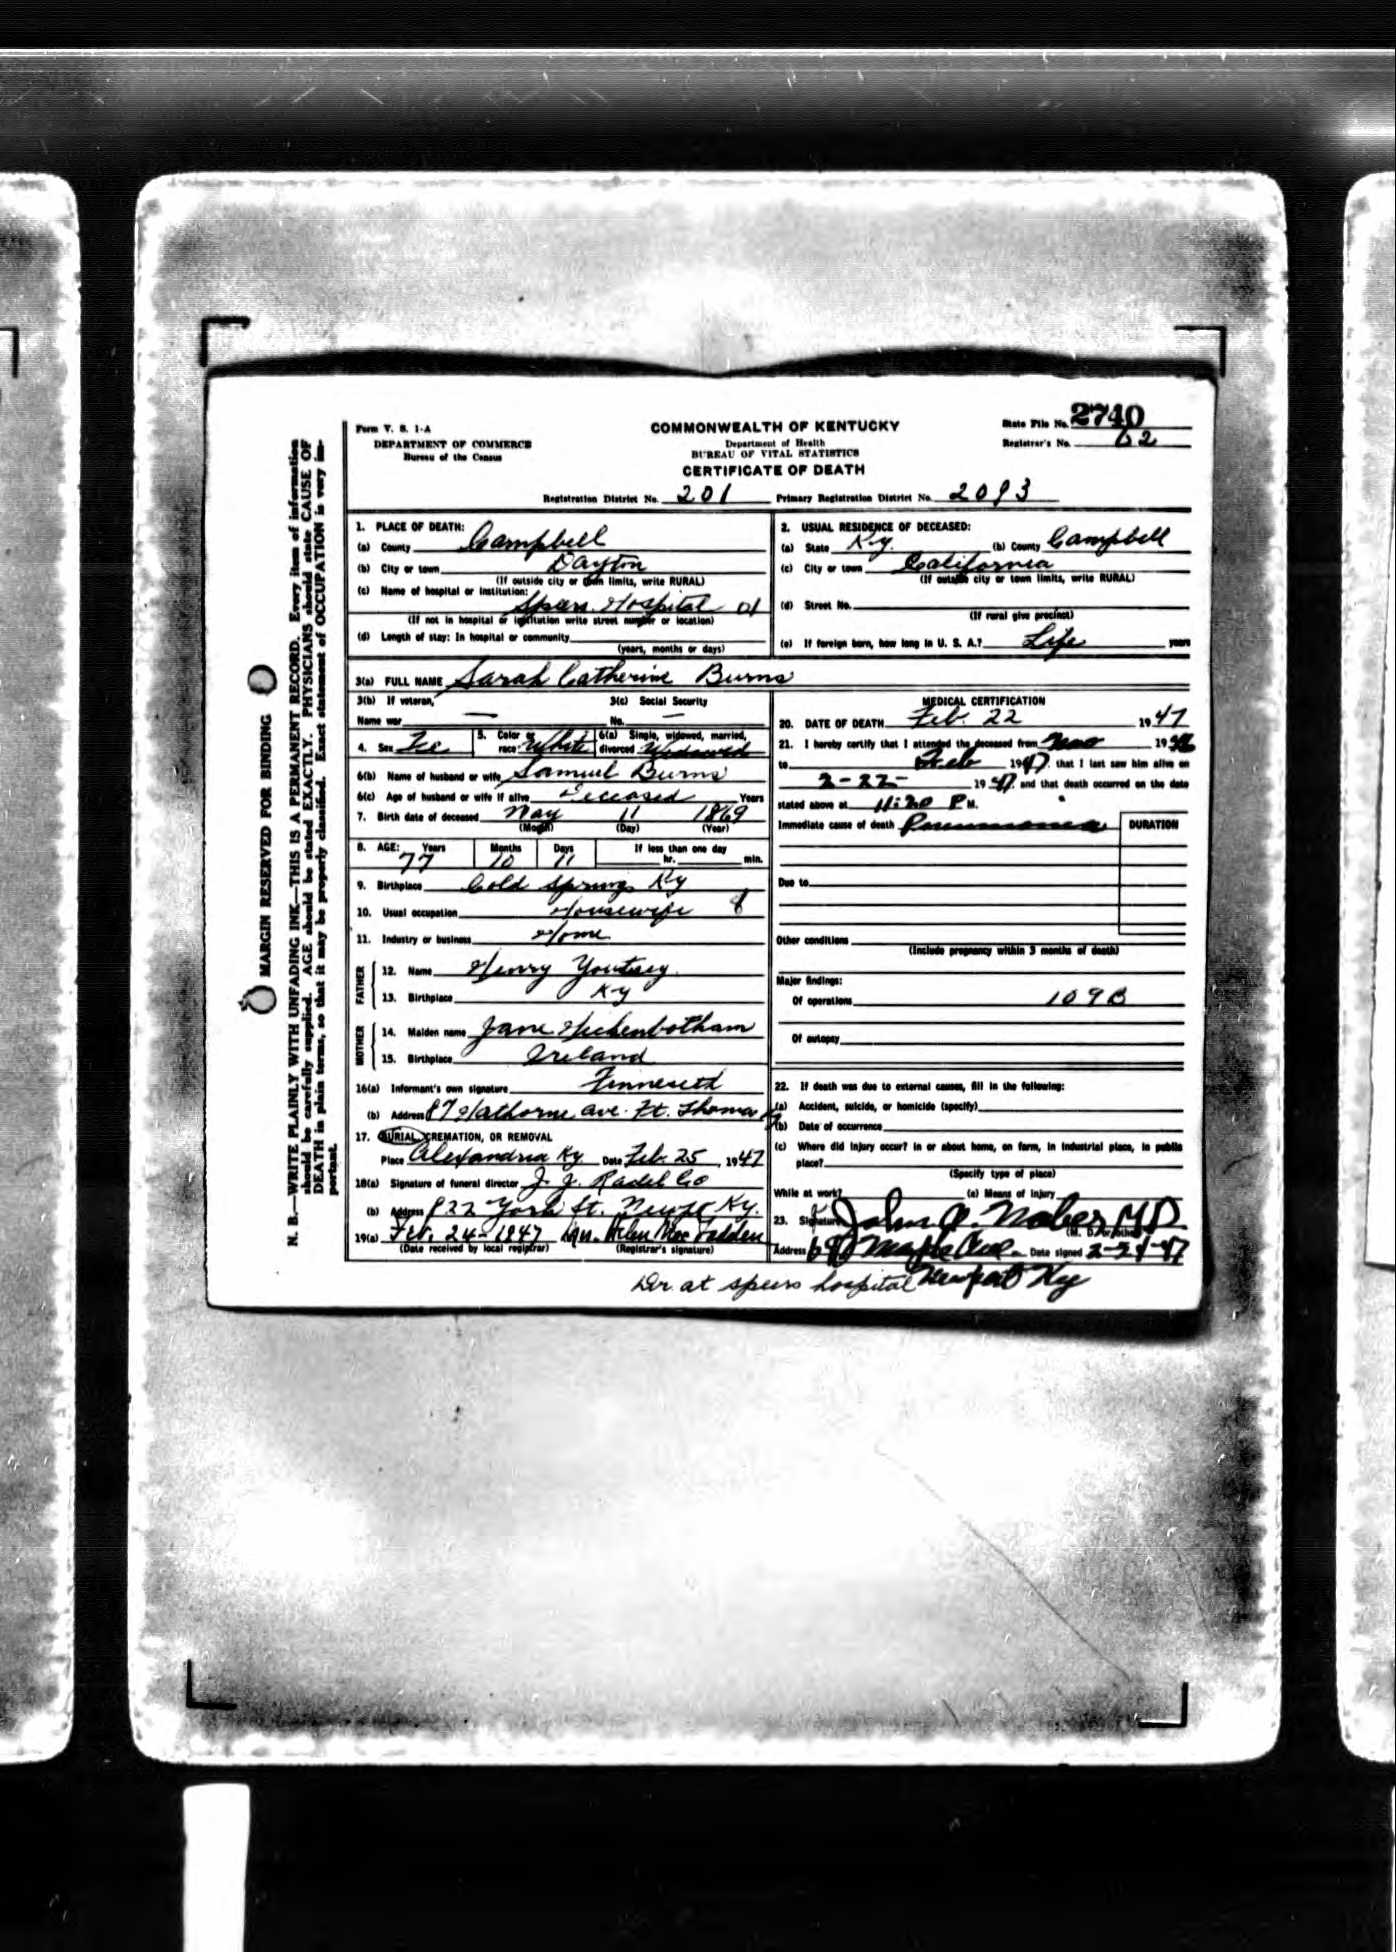 Form V. S. 1-A
DEPARTMENT OF COMMERCE
Bureau of the Census
COMMONWEALTH OF KENTUCKY
Department of Health
BUREAU OF VITAL STATISTICS
CERTIFICATE OF DEATH
State File No. 2740
Registrar's No. 62
Registration District No. 201 Primary Registration District No. 2093
1. PLACE OF DEATH:
(a) County Campbell
(b) City or town Dayton
(If outside city or town limits, write RURAL)
(c) Name of hospital or institution:
Speers Hospital 01
(If not in hospital or institution write street number or location)
(d) Length of stay: In hospital or community
(years, months or days)
2. USUAL RESIDENCE OF DECEASED:
(a) State Ky. (b) County Campbell
(c) City or town California
(If outside city or town limits, write RURAL)
(d) Street No.
(If rural give precinct)
(e) If foreign born, how long in U. S. A.? Life years
3(a) FULL NAME Sarah Catherine Burns
3(b) If veteran, 3(c) Social Security
Name war — No. —
4. Sex Fe 5. Color or race White 6(a) Single, widowed, married, divorced Widowed
6(b) Name of husband or wife Samuel Burns
6(c) Age of husband or wife if alive Deceased Years
7. Birth date of deceased May 11 1869
(Month) (Day) (Year)
8. AGE: Years Months Days If less than one day
77 10 11 hr. min.
9. Birthplace Cold Springs Ky
10. Usual occupation Housewife 8
11. Industry or business Home
FATHER
12. Name Henry Youtsey
13. Birthplace Ky
MOTHER
14. Maiden name Jane Hickenbotham
15. Birthplace Ireland
16(a) Informant's own signature
(b) Address 87 Hathorne ave. Ft. Thomas Ky
17. BURIAL, CREMATION, OR REMOVAL
Place Alexandria Ky Date Feb. 25, 1947
18(a) Signature of funeral director J. J. Radel Co
(b) Address 822 York St. Newport Ky.
19(a) Feb. 24-1947 Mrs. Helen MacFadden
(Date received by local registrar) (Registrar's signature)
MEDICAL CERTIFICATION
20. DATE OF DEATH Feb. 22 1947
21. I hereby certify that I attended the deceased from Nov 1946
to Feb 1947, that I last saw him alive on
2-22- 1947, and that death occurred on the date
stated above at 11:20 P M.
Immediate cause of death Pneumonia DURATION
Due to
Other conditions
(Include pregnancy within 3 months of death)
Major findings:
Of operations 109B
Of autopsy
22. If death was due to external causes, fill in the following:
(a) Accident, suicide, or homicide (specify)
(b) Date of occurrence
(c) Where did injury occur? In or about home, on farm, in industrial place, in public
place?
(Specify type of place)
While at work? (e) Means of injury
23. Signature John O. Nober MD
(M. D. or other)
Address Maple Ave. Date signed 2-24-47
Dr at speers hospital Newport Ky
MARGIN RESERVED FOR BINDING
N. B.—WRITE PLAINLY WITH UNFADING INK—THIS IS A PERMANENT RECORD. Every item of information
should be carefully supplied. AGE should be stated EXACTLY. PHYSICIANS should state CAUSE OF
DEATH in plain terms, so that it may be properly classified. Exact statement of OCCUPATION is very im-
portant.